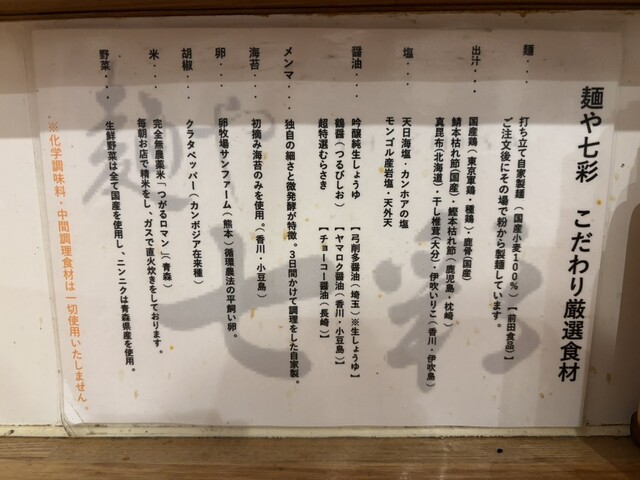 麺や七彩 こだわり厳選食材
麺・・・ 打ち立て自家製麺(国産小麦100%)【前田食品】
ご注文後にその場で粉から製麺しています。
出汁・・・ 国産鶏(東京軍鶏・種鶏)・鹿骨(国産)
鯖本枯れ節(国産)・鰹本枯れ節(鹿児島・枕崎)
真昆布(北海道)・干し椎茸(大分)・伊吹いりこ(香川・伊吹島)
塩・・・ 天日海塩・カンホアの塩
モンゴル産岩塩・天外天
醤油・・・ 吟醸純生しょうゆ 【弓削多醤油(埼玉)※生しょうゆ】
鶴醤(つるびしお) 【ヤマロク醤油(香川・小豆島)】
超特選むらさき 【チョーコー醤油(長崎)】
メンマ・・・ 独自の細さと微発酵が特徴。3日間かけて調理をした自家製。
海苔・・・ 初摘み海苔のみを使用。(香川・小豆島)
卵・・・ 卵牧場サンファーム(熊本)循環農法の平飼い卵。
胡椒・・・ クラタペッパー(カンボジア在来種)
米・・・ 完全無農薬米「つがるロマン」(青森)
毎朝お店で精米をし、ガスで直火炊きをしております。
野菜・・・ 生鮮野菜は全て国産を使用し、ニンニクは青森県産を使用。
※化学調味料・中間調理食材は一切使用いたしません。
麺や七彩